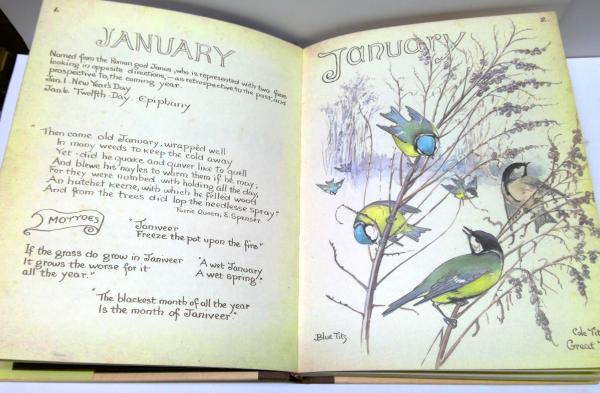 1.
JANUARY
Named from the Roman god Janus, who is represented with two faces
looking in opposite directions, — as retrospective to the past, and
prospective to, the coming year.
Jan. 1. New Year's Day
Jan 6. Twelfth-Day. Epiphany
"Then came old January, wrappèd well
In many weeds to keep the cold away
Yet did he quake and quaver like to quell
And blowe his nayles to warm them if he may;
For they were numbed with holding all the day,
An hatchet keene, with which he felled wood
And from the trees did lop the needlesse spray"
Faerie Queen, E. Spenser.
MOTTOES
"Janiveer
Freeze the pot upon the fire"
If the grass do grow in Janiveer
It grows the worse for it
all the year."
"A wet January
A wet spring"
"The blackest month of all the year
Is the month of Janiveer"
2.
January
Blue Tits
Cole
Great